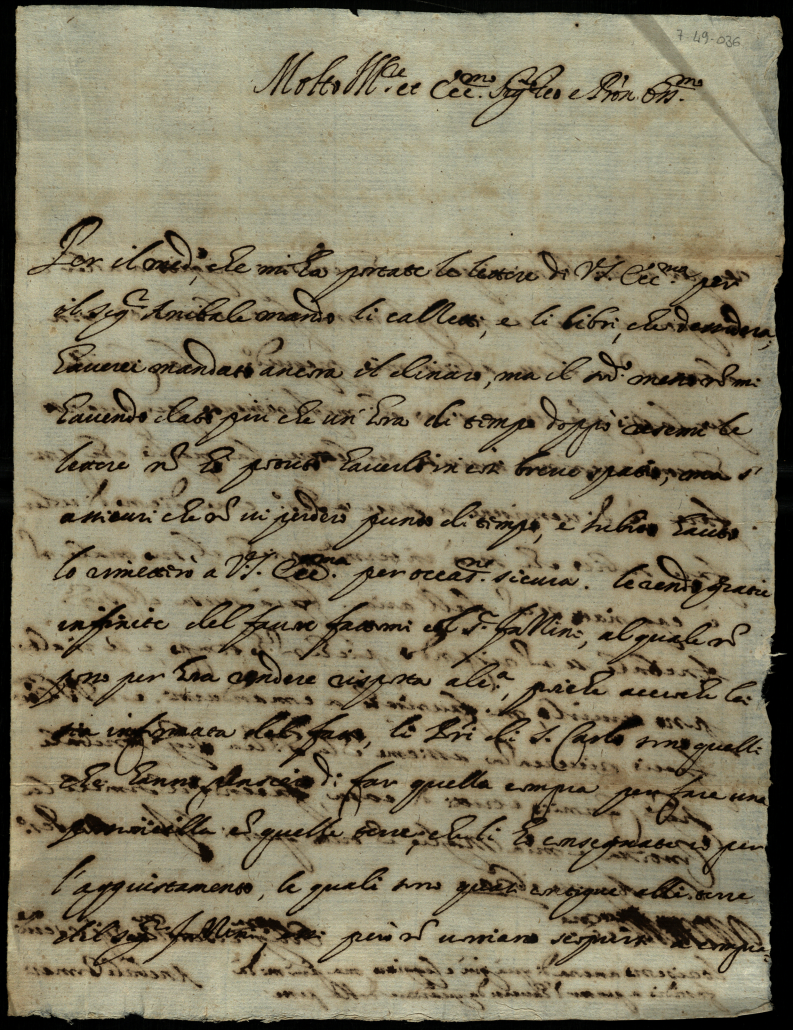 7-49-036
Molto Ill.re et Ecc.mo Sig.re e Pron Oss.mo
Per il med.o, che mi ha portate le lettere di V.S. Ecc.ma per
il Sig.r Anibale mando li calletti, e li libri, che desidera,
haverei mandato ancora il dinaro, ma il sud.o messo nõ mi
havendo dato più che un' hora di tempo doppò le
lettere nõ hò haverlo in così breve spatio, ma s'
assicuri che nõ vi perderò punto di tempo, e subito havuto
lo rimetterò a V.S. Ecc.ma per occas.ne sicura. le rendo gratie
infinite del favore fattomi col S.r, al quale nõ
per hora rendere risposta, perche accioche lei
sia informata del fatto, li Pri di S. Carlo sono quelli
che hanno di far quella compra per fare una
cõ quelle terre, che li hò consegnato io per
l'aggiustamento, le quali sono contigue alle terre
del Sig.r però nõ